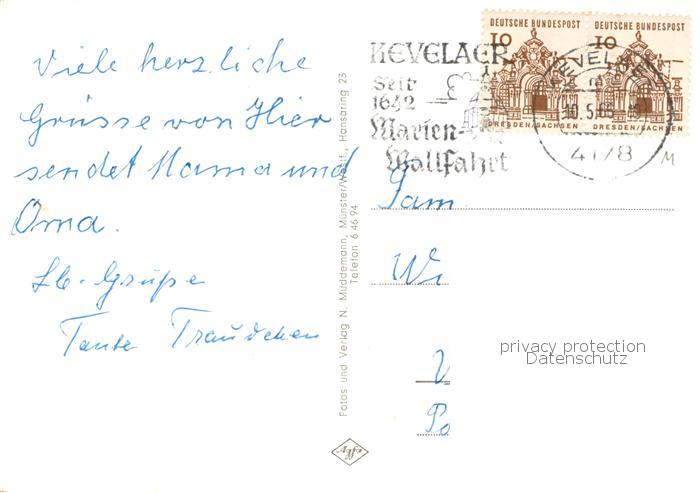 Viele herzliche
Grüsse von Hier
sendet Mama und
Oma.
Lb. Grüße
Tante Traudchen
Fotos und Verlag N. Muddemann, Münster/Westf., Hansaring 23
Telefon 6 46 94
Agfa
KEVELAER
Seit
1642
Marien-
Wallfahrt
DEUTSCHE BUNDESPOST
10
DRESDEN/SACHSEN
DEUTSCHE BUNDESPOST
10
DRESDEN/SACHSEN
KEVELAER
4178
M
Fam
Wi
V
Po
privacy protection
Datenschutz